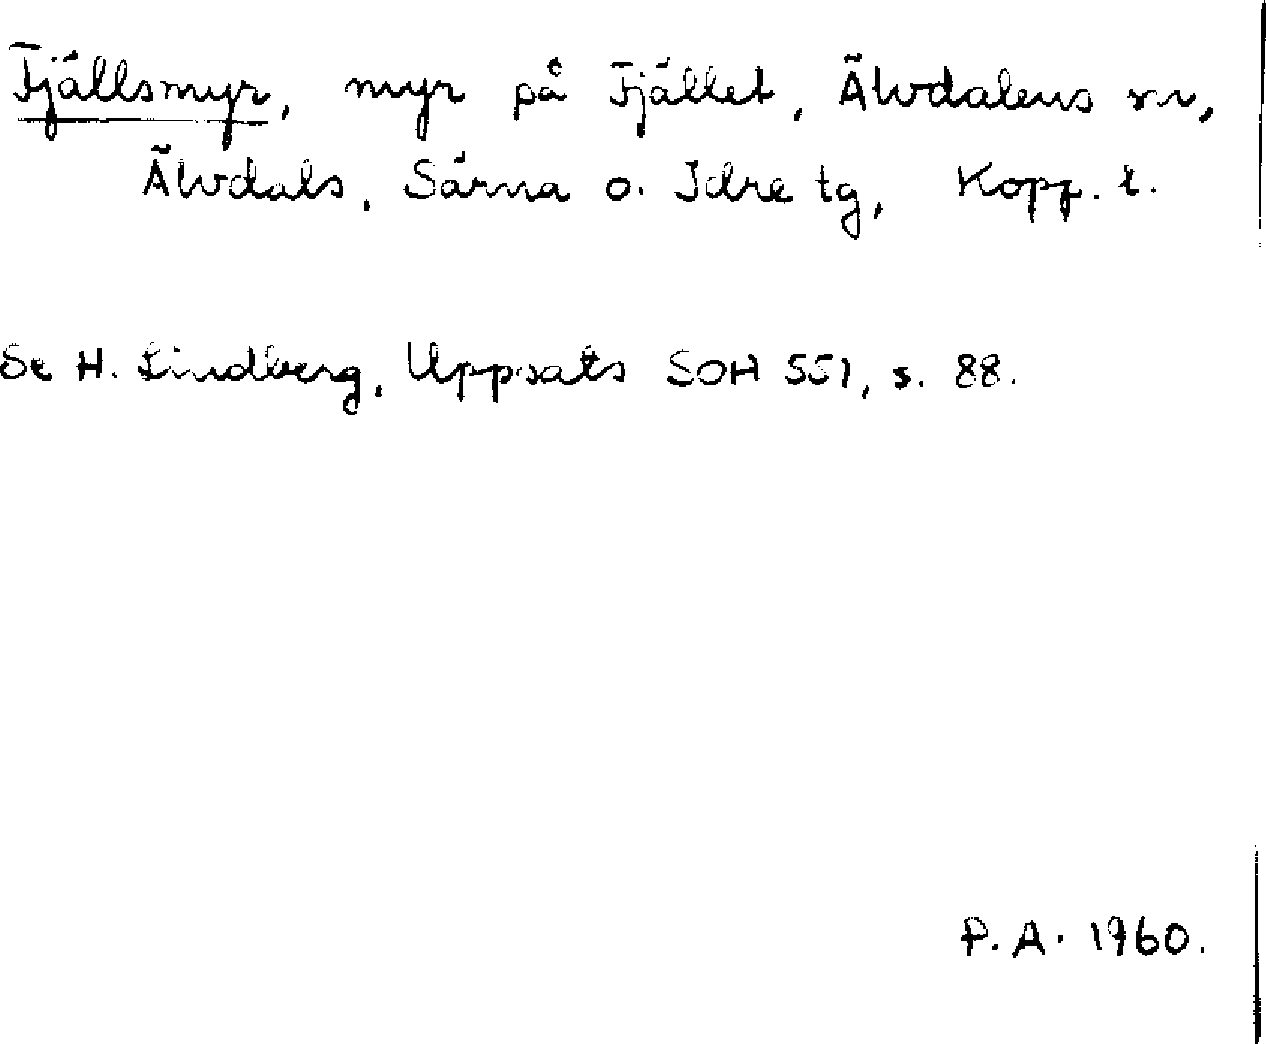 Fjällsmyr, myr på Fjället, Älvdalens sn,
Älvdals, Särna o. Idre tg, Kopp. l.
Se H. Lindberg, Uppsats SOH 551, s. 88.
P. A. 1960.